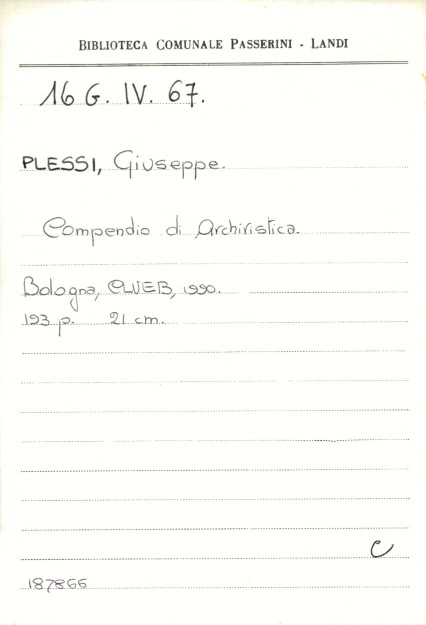 BIBLIOTECA COMUNALE PASSERINI - LANDI
16 G. IV. 67.
PLESSI, Giuseppe.
Compendio di Archivistica.
Bologna, CLUEB, 1990.
193 p. 21 cm.
C
187866